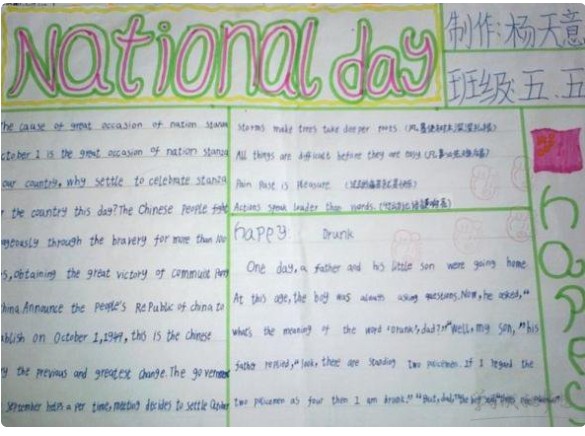 National day
制作:杨天意
班级:五.五
The cause of great occasion of nation stanza
ctober 1 is the great occasion of nation stanza
our country, why settle to celebrate stanza
r the country this day? The Chinese People fight
ageously through the bravery for more than 100
s, obtaining the great victory of communist Party
hina Announce the People's RePublic of china to
ablish on October 1,1949, this is the chinese
y the previous and greatest change. The governm
september helts a per time, meeting decides to settle October
storms make trees take deeper roots.
All things are difficult before they are easy
Pain Past is Pleasure.
Actions speak louder than words.
happy: Drunk
One day, a father and his little son were going home.
At this age, the boy was always asking questions. Now, he asked,"
what's the meaning of the word 'Drunk', dad?" "Well, my son," his
father replied, "look, there are standing two policemen. If I regard the
two policemen as four then I am drunk." "But, dad," the boy said
haPPy